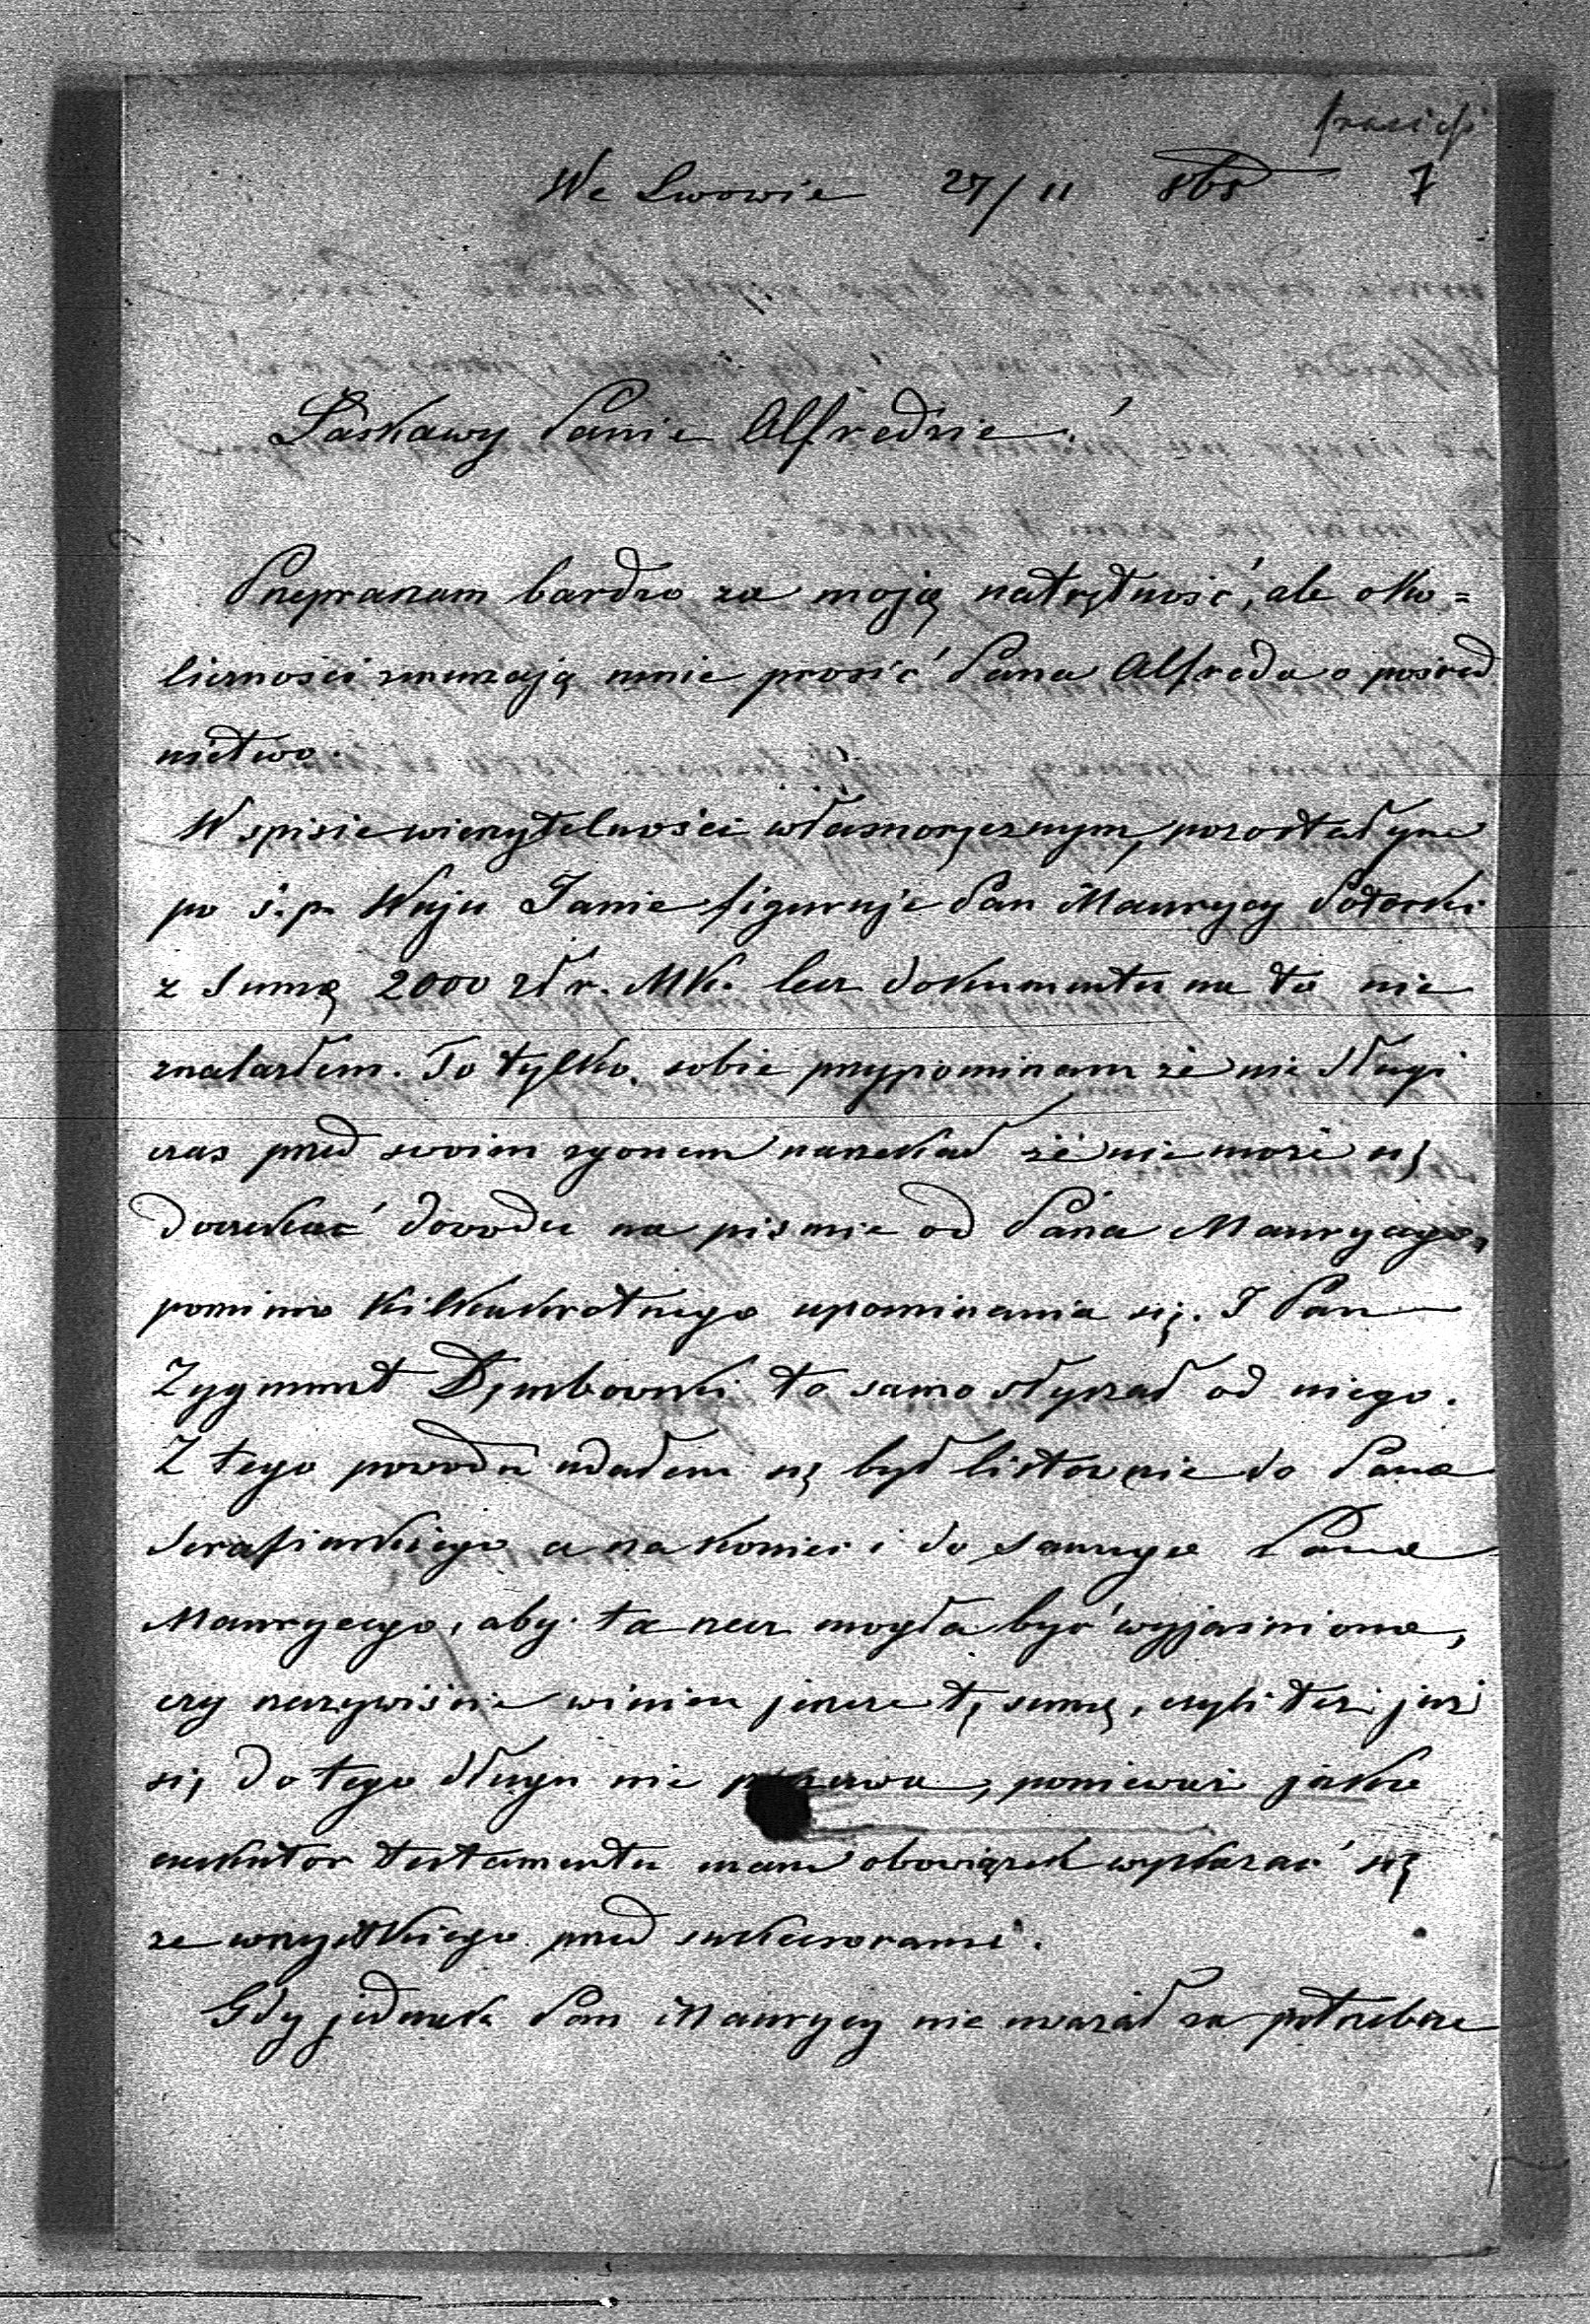 7
We Lwowie 27/11 868
Łaskawy Panie Alfredzie!
Przepraszam bardzo za moją natrętność, ale oko=
liczności zmuszają mnie prosić Pana Alfreda o pośred
nictwo.
W spisie wierzytelności własnoręcznym, pozostałym
po ś.p. Wuju Janie figuruje Pan Maurycy Potocki
z Sumą 2000 złr. MK. lecz dokumentu na to nie
znalazłem. To tylko sobie przypominam że nie długi
czas przed swoim zgonem narzekał że nie może się
doczekać dowodu na piśmie od Pana Maurycego,
pomimo kilkakrotnego upominania się. I Pan
Zygmunt Dembowski to samo słyszał od niego.
Z tego powodu udałem się był listownie do Pana
Serafińskiego a na koniec i do samego Pana
Maurycego, aby ta rzecz mogła być wyjaśniona,
czy rzeczywiście winien jeszcze tę sumę, czyli też już
się do tego długu nie poczuwa, ponieważ jako
exekutor testamentu mam obowiązek wykazać się
ze wszystkiego przed sukcesorami.
Gdy jednak Pan Maurycy nie uważał za potrzebne